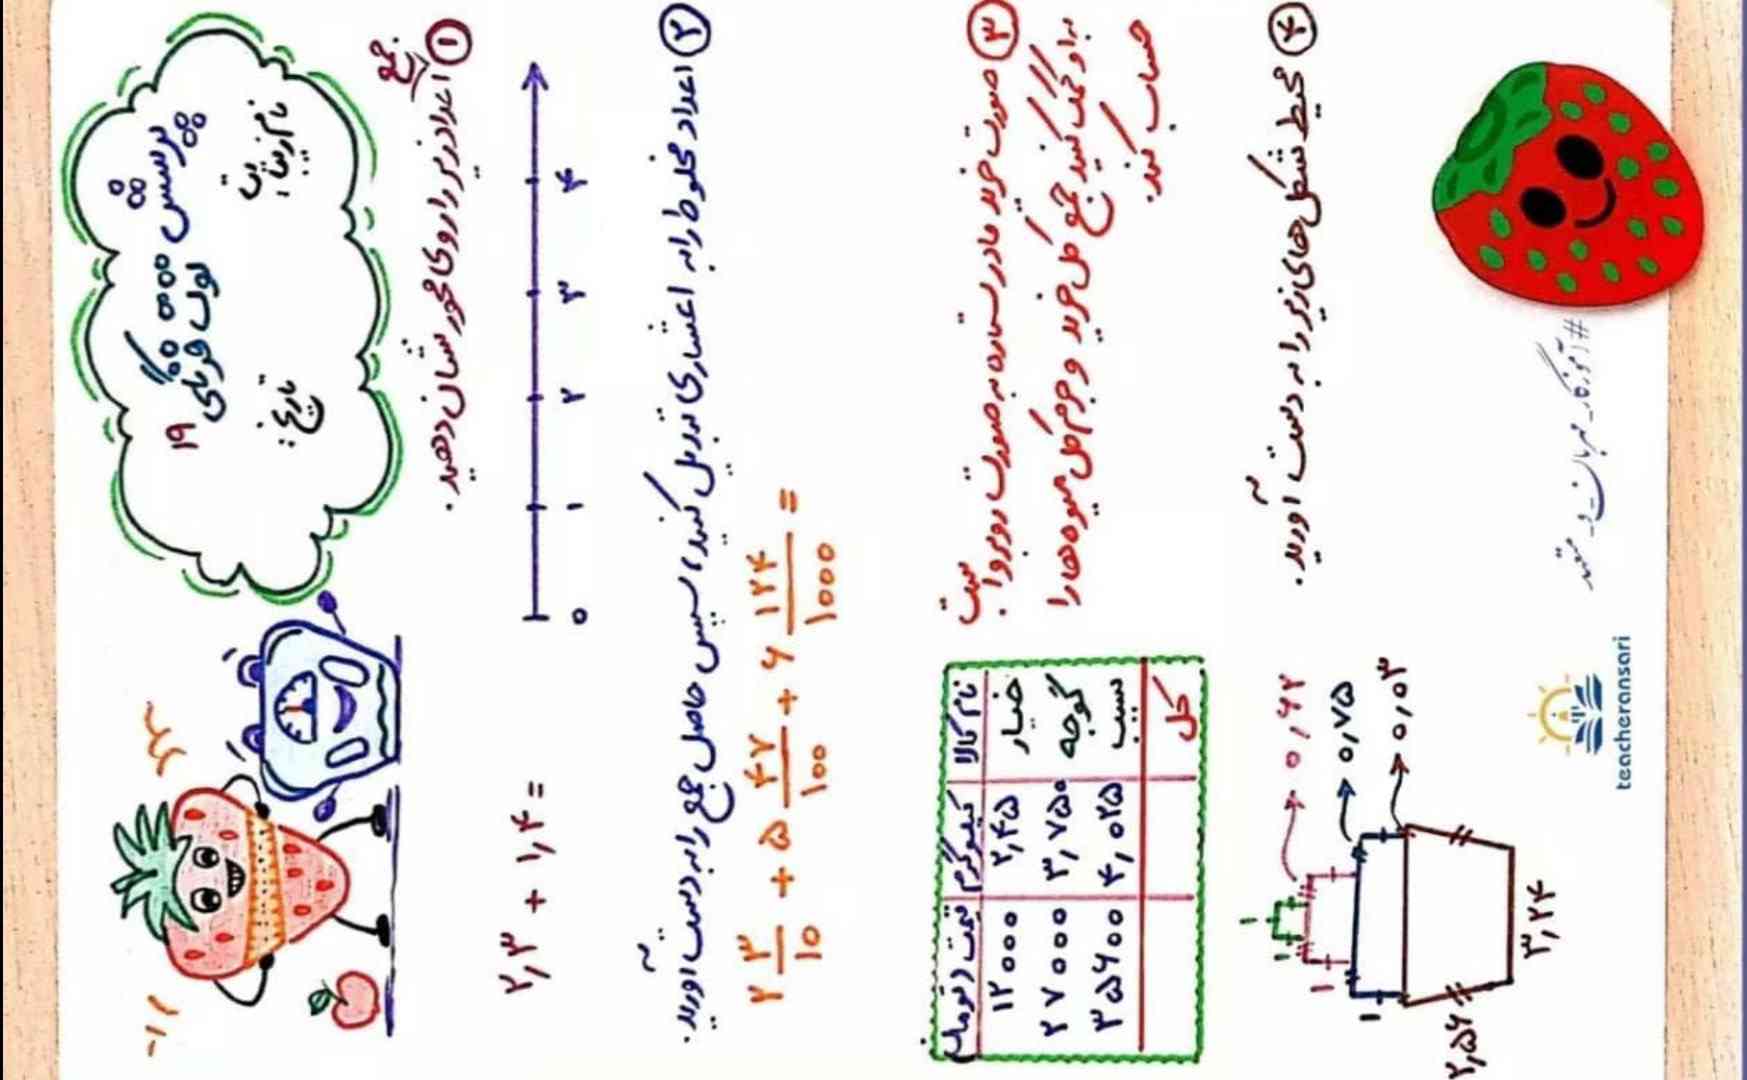 نام زیبایت:
پرسش های گوگولی
۱۹
تاریخ:
۱ اعداد زیر را روی محور نشان دهید.
جمع
۰ ۱ ۲ ۳ ۴
۲٫۳ + ۱٫۴ =
۲ اعداد مخلوط را به اعشاری تبدیل کنید، سپس حاصل جمع را به دست آورید.
۲ ۳/۱۰ + ۵ ۴۷/۱۰۰ + ۶ ۱۲۴/۱۰۰۰ =
۳ صورت خرید مادر ستاره به صورت روبرو است
به او کمک کنید جمع کل خرید و جرم کل میوه ها را
حساب کند.
نام کالا کیلوگرم قیمت (تومان)
خیار ۲٫۴۵ ۱۲۰۰۰
گوجه ۳٫۷۵۰ ۲۷۰۰۰
سیب ۴٫۰۲۵ ۳۵۶۰۰
کل
۴ محیط شکل های زیر را به دست آورید.
۰٫۶۲
۰٫۷۵
۰٫۵۳
۱
۱
۱
۱
۲٫۵۶
۳٫۲۴
#آموزگار_مهربان_و_متعهد
teacheransari